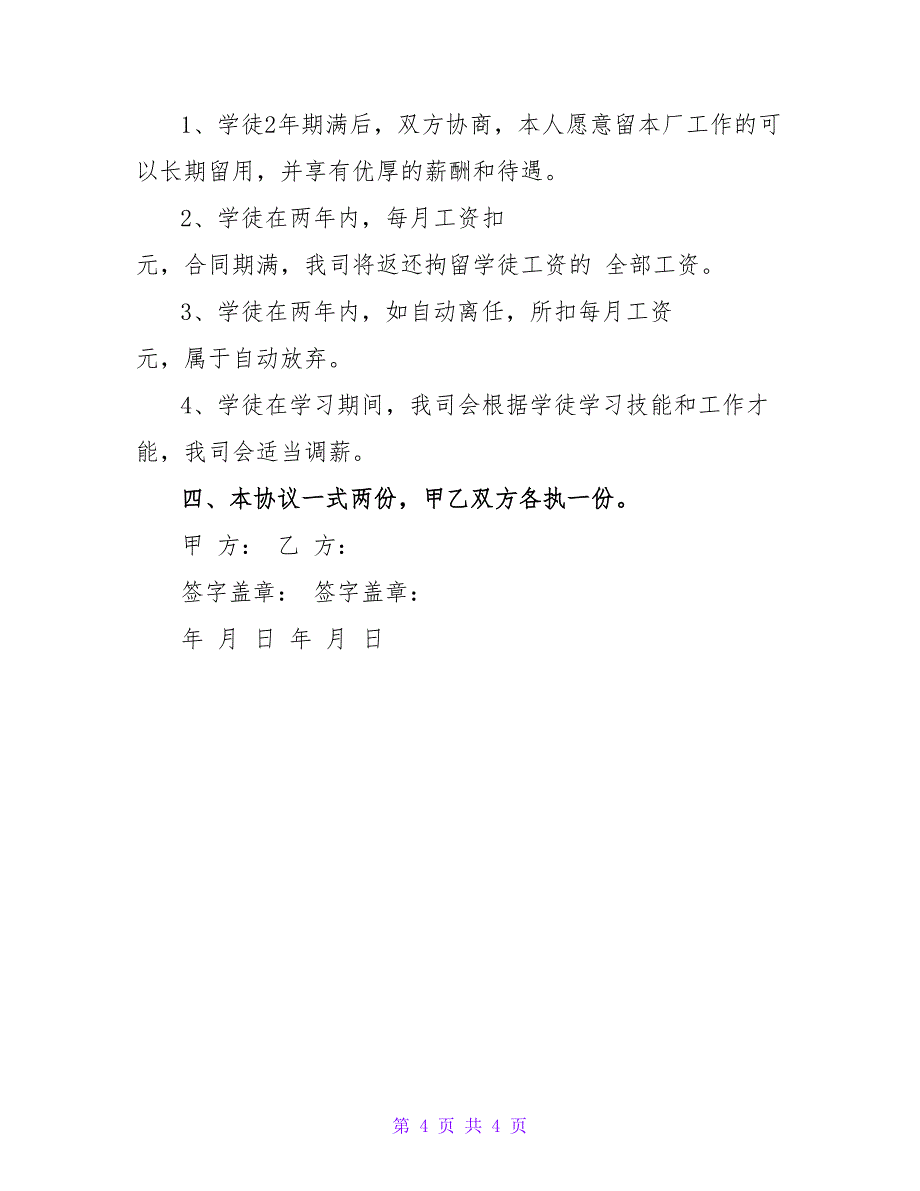 1、学徒2年期满后，双方协商，本人愿意留本厂工作的可
以长期留用，并享有优厚的薪酬和待遇。
2、学徒在两年内，每月工资扣
元，合同期满，我司将返还拘留学徒工资的 全部工资。
3、学徒在两年内，如自动离任，所扣每月工资
元，属于自动放弃。
4、学徒在学习期间，我司会根据学徒学习技能和工作才
能，我司会适当调薪。
四、本协议一式两份，甲乙双方各执一份。
甲 方： 乙 方：
签字盖章： 签字盖章：
年 月 日 年 月 日
第 4 页 共 4 页